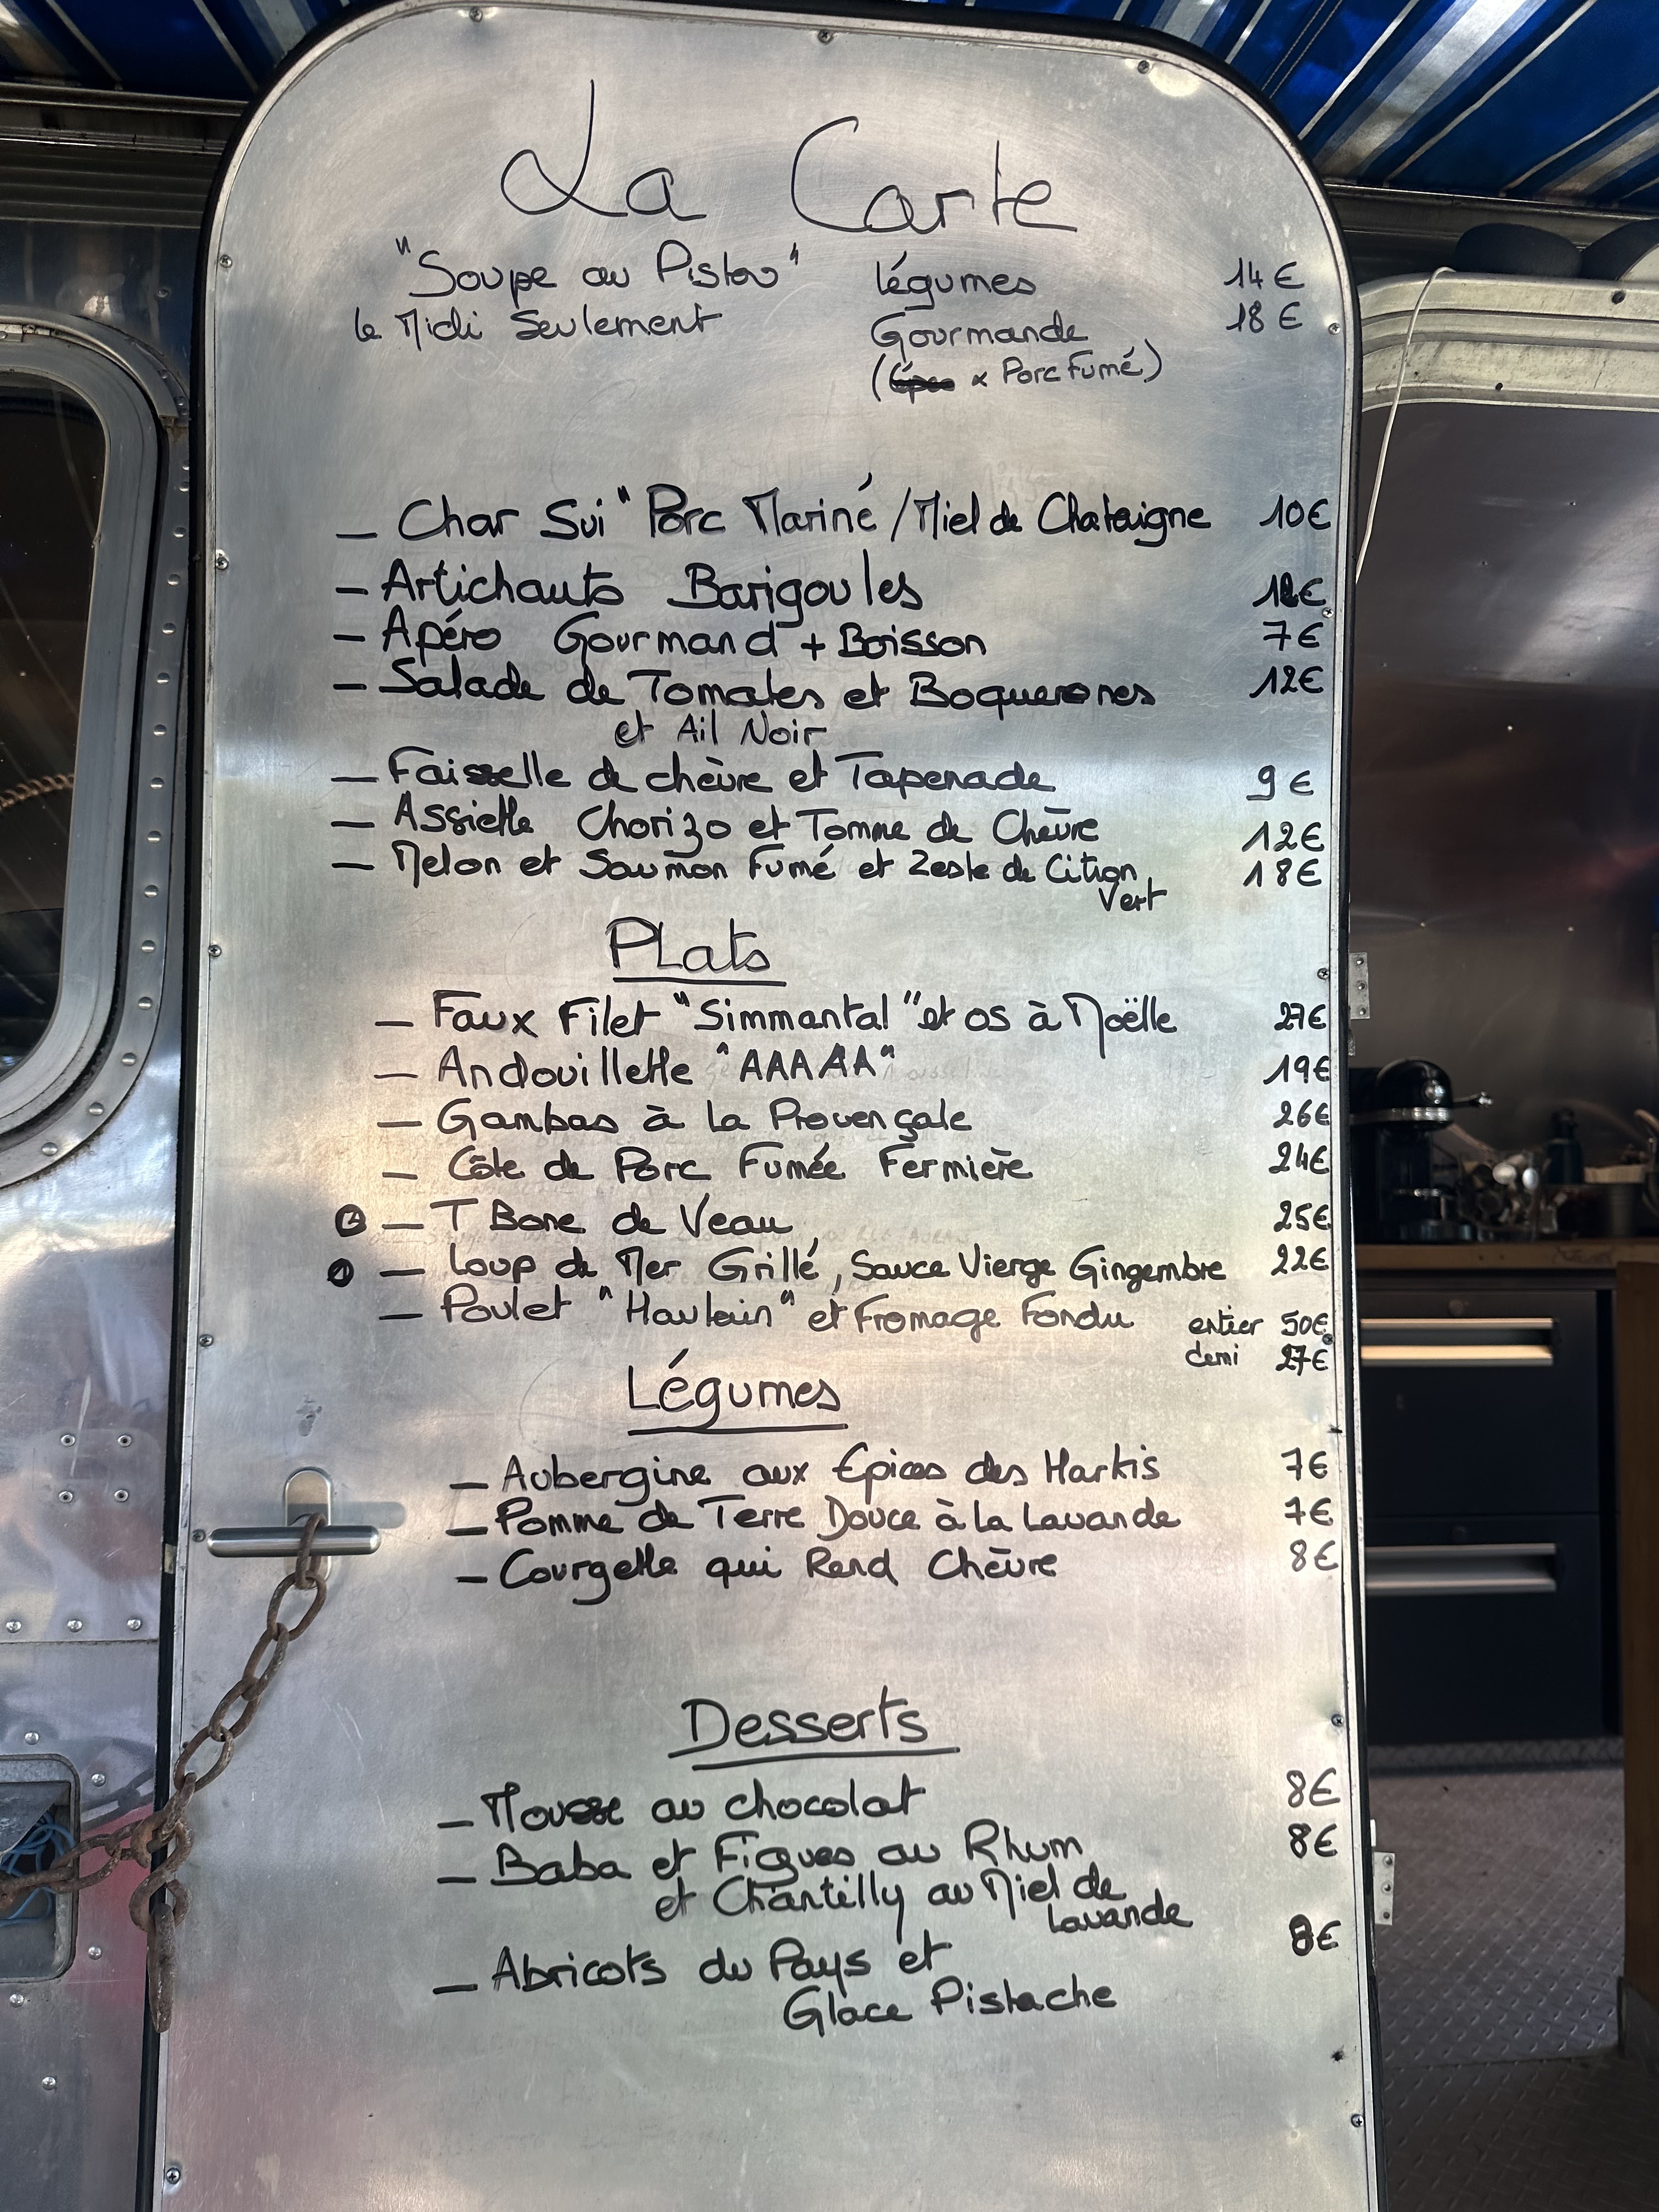 La Carte
"Soupe au Pistou" légumes 14€
le Midi Seulement Gourmande 18€
( x Porc Fumé)
– Char Sui " Porc Mariné / Miel de Chataigne 10€
– Artichauts Barigoules €
– Apéro Gourmand + Boisson 7€
– Salade de Tomates et Boquerones 12€
et Ail Noir
– Faisselle de chèvre et Tapenade 9€
– Assiette Chorizo et Tomme de Chèvre 12€
– Melon et Saumon Fumé et Zeste de Citron 18€
Vert
Plats
– Faux Filet "Simmantal" et os à Moëlle 27€
– Andouillette "AAAAA" 19€
– Gambas à la Provençale 26€
– Côte de Porc Fumée Fermière 24€
– T Bone de Veau 25€
1 – Loup de Mer Grillé, Sauce Vierge Gingembre 22€
– Poulet " " et Fromage Fondu entier 50€
demi 27€
Légumes
– Aubergine aux Epices des Harkis 7€
– Pomme de Terre Douce à la Lavande 7€
– Courgette qui Rend Chèvre 8€
Desserts
– Mousse au chocolat 8€
– Baba et Figues au Rhum 8€
et Chantilly au Miel de
Lavande
– Abricots du Pays et 8€
Glace Pistache